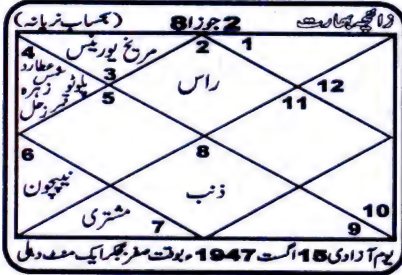 زائچہ بھارت 2 جوزا 8 (بحساب نریانہ)
1
2
مریخ یورینس
4
عطارد
شمس
پلوٹو زہرہ
قمر زحل
3
5
راس
12
11
6
8
نیپچون
ذنب
مشتری
7
10
9
یوم آزادی 15 اگست 1947ء بوقت صفر بجکر ایک منٹ دہلی